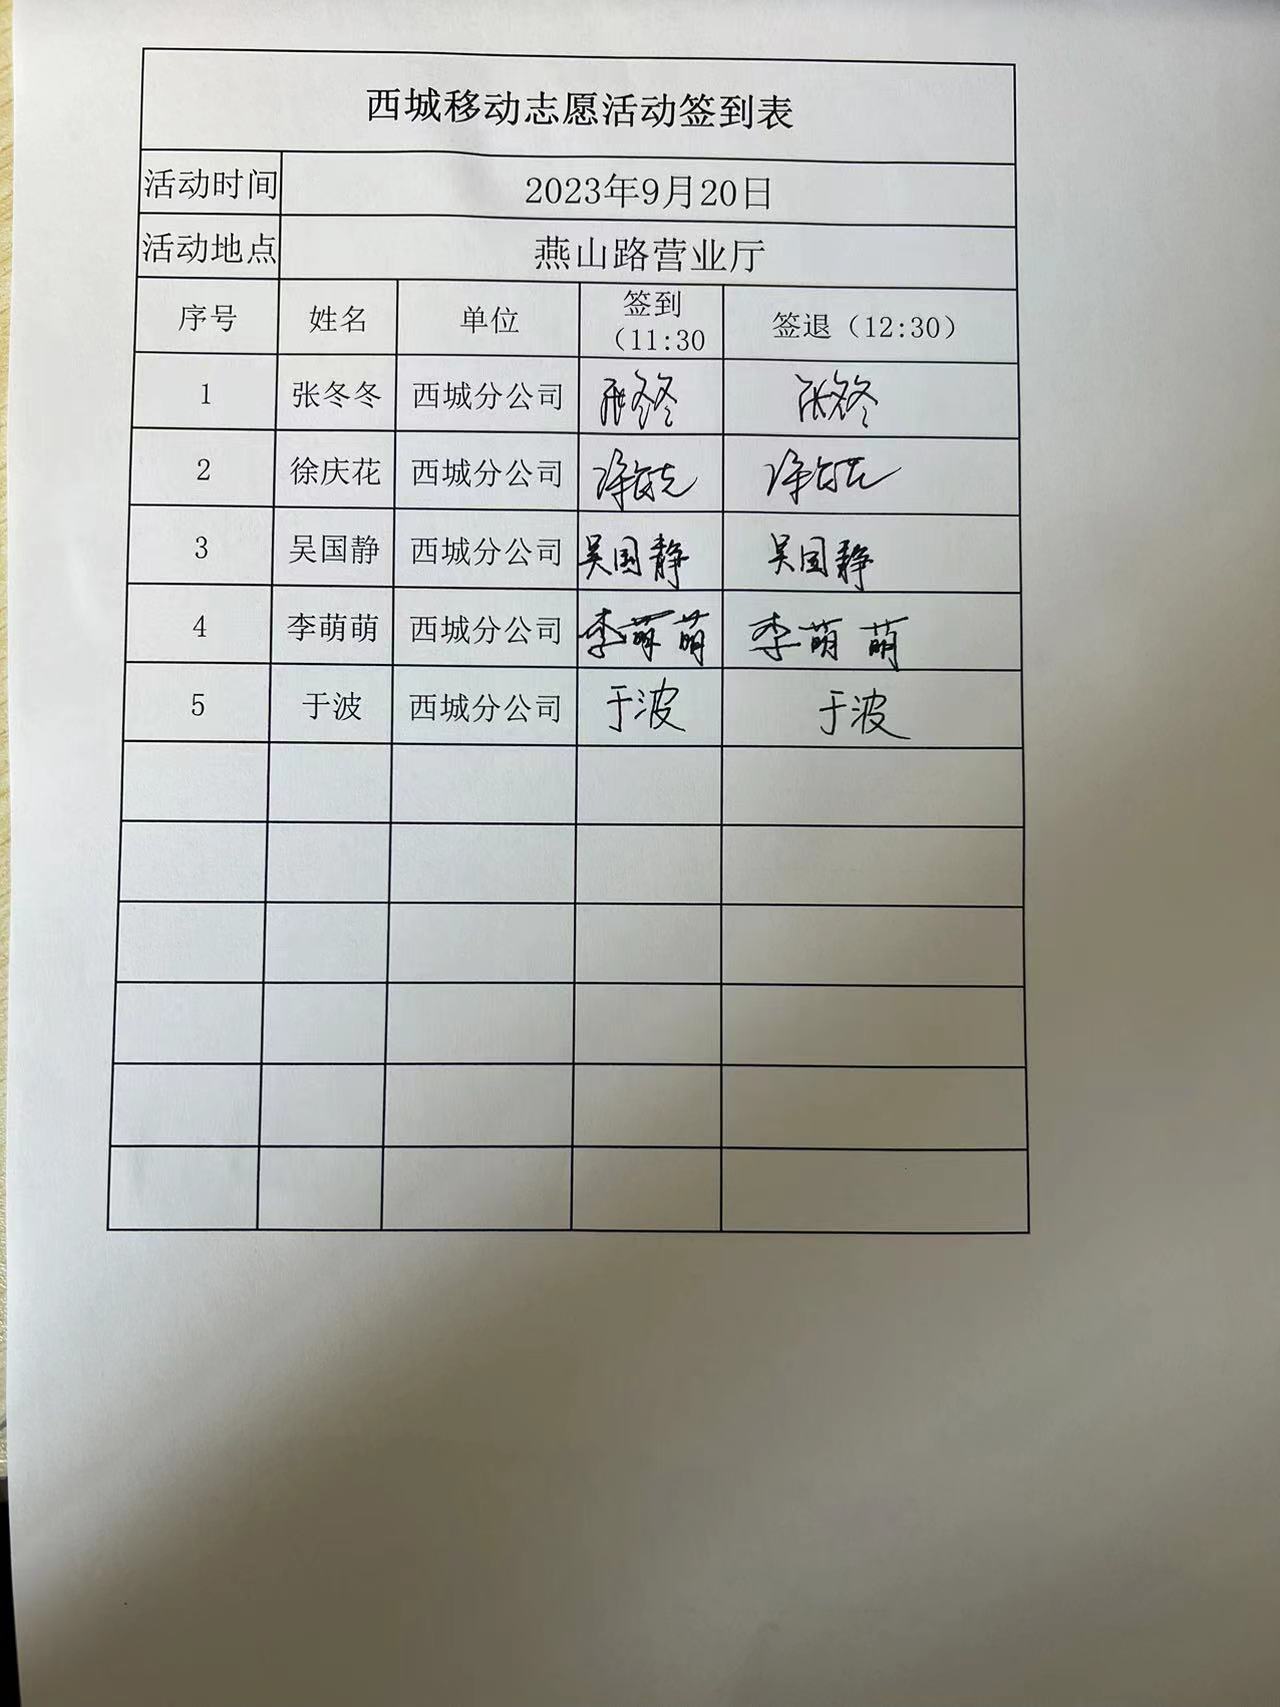 西城移动志愿活动签到表
活动时间 2023年9月20日
活动地点 燕山路营业厅
序号 姓名 单位 签到（11:30 签退（12:30）
1 张冬冬 西城分公司 张冬冬 张冬冬
2 徐庆花 西城分公司 徐庆花 徐庆花
3 吴国静 西城分公司 吴国静 吴国静
4 李萌萌 西城分公司 李萌萌 李萌萌
5 于波 西城分公司 于波 于波